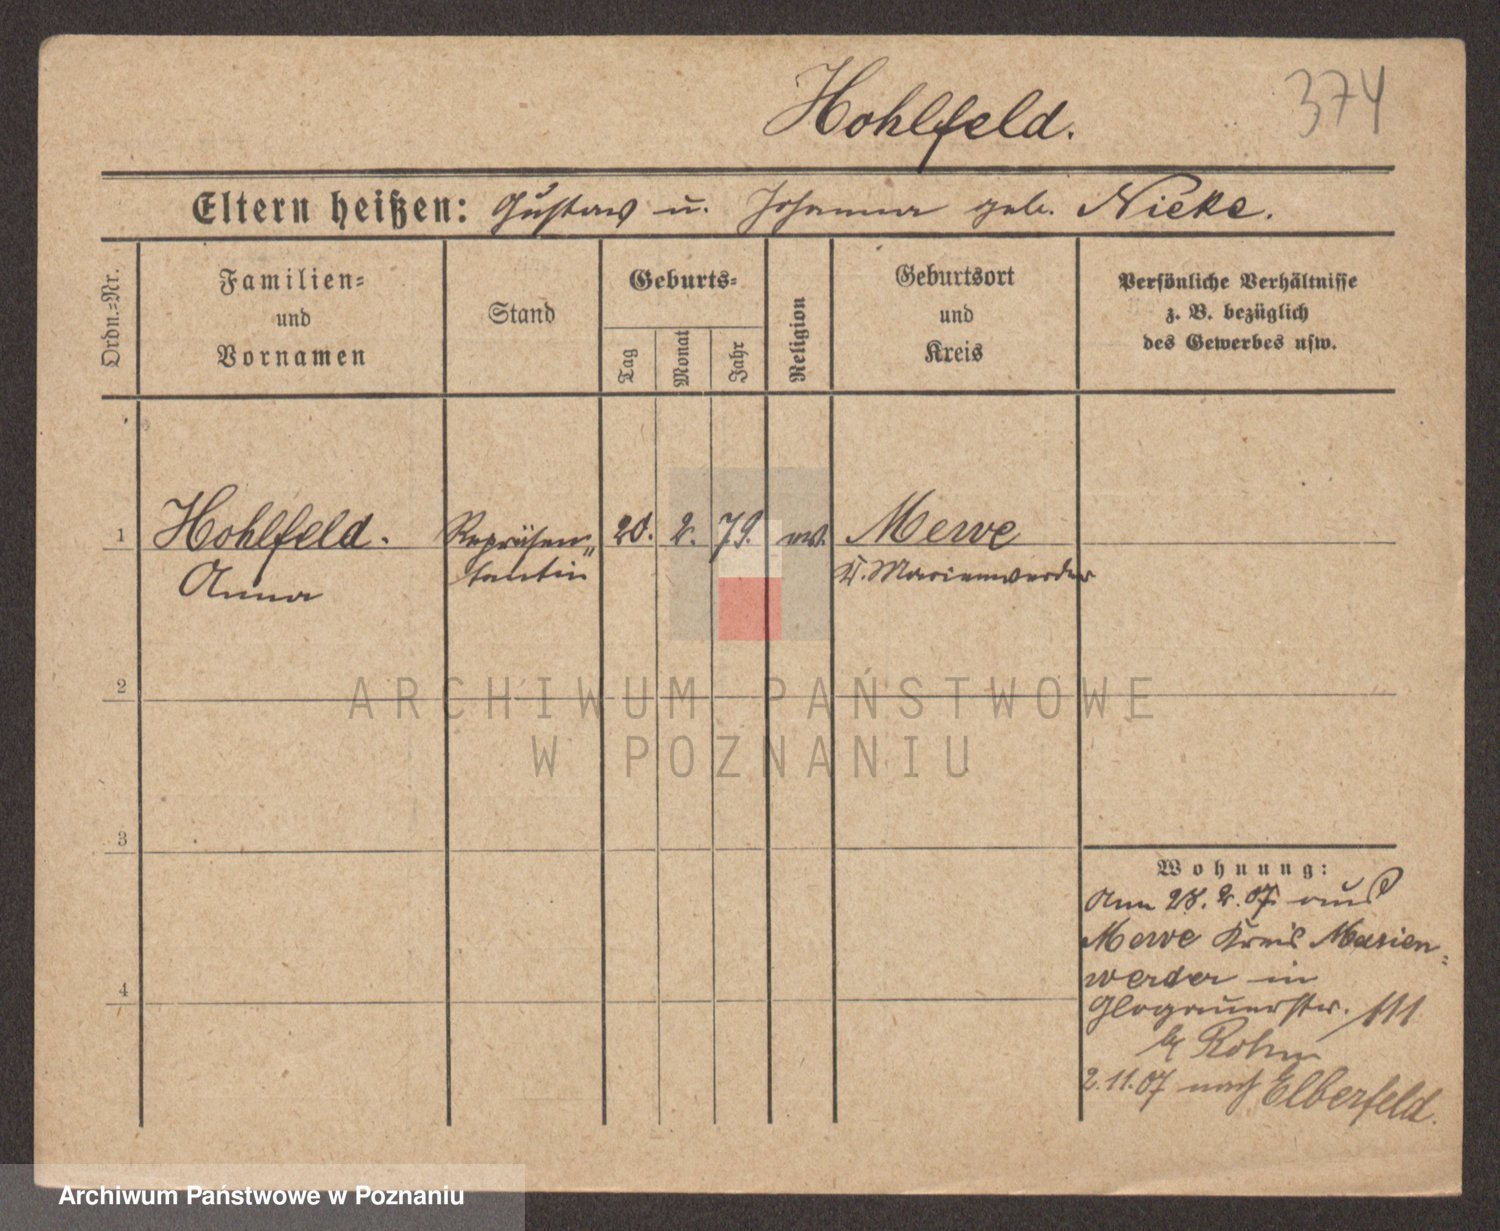 Hohlfeld.
374
Eltern heißen: Gustav u. Johanna geb. Nieke.
Ordn.=Nr.
Familien=
und
Vornamen
Stand
Geburts=
Tag
Monat
Jahr
Religion
Geburtsort
und
Kreis
Persönliche Verhältnisse
z. B. bezüglich
des Gewerbes usw.
1
Hohlfeld.
Anna
Repräsen„
tantin
20. 2. 79.
ev.
Mewe
K. Marienwerder
2
ARCHIWUM PAŃSTWOWE
W POZNANIU
3
4
Wohnung:
Am 28. 2. 07 aus
Mewe Kreis Marien=
werder in
Glogauerstr. 111
b/
2.11.07 nach Elberfeld.
Archiwum Państwowe w Poznaniu